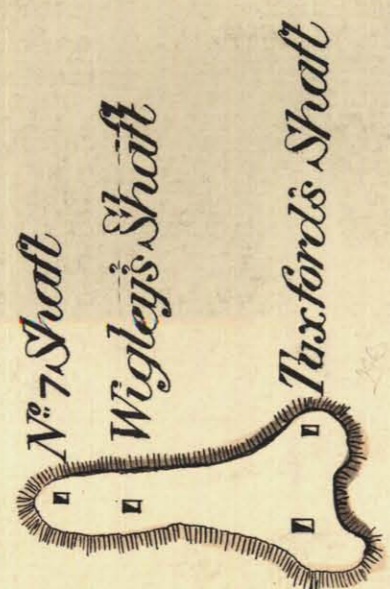 Nº 7 Shaft
Wigley's Shaft
Tuxford's Shaft